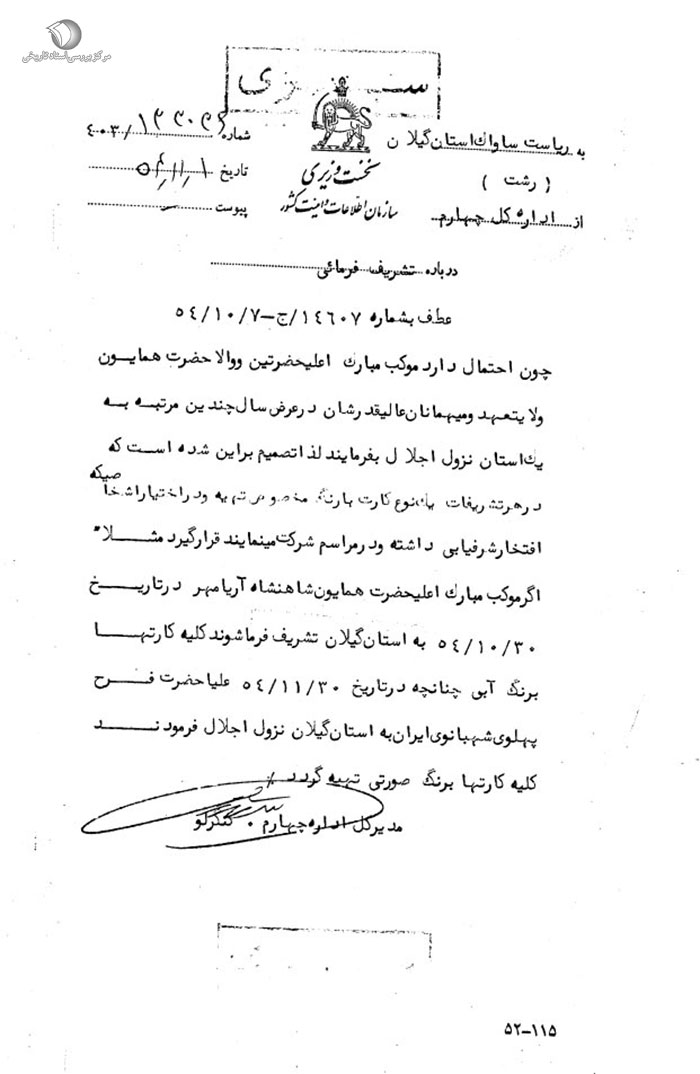 مرکز بررسی اسناد تاریخی
سری
به ریاست ساواک استان گیلان
(رشت)
از اداره کل چهارم
نخست وزیری
سازمان اطلاعات و امنیت کشور
شماره /۴۰۰۳
تاریخ
پیوست
درباره تشریف فرمائی
عطف بشماره ۱۴۶۰۷/ج-۵۴/۱۰/۷
چون احتمال دارد موکب مبارک اعلیحضرتین و والاحضرت همایون
ولایتعهد ومیهمانان عالیقدرشان درعرض سال چندین مرتبه به
یک استان نزول اجلال بفرمایند لذا تصمیم براین شده است که
درهرتشریفات یک نوع کارت بارنگ مخصوص تهیه ودراختیاراشخاصیکه
افتخارشرفیابی داشته ودرمراسم شرکت مینمایند قرارگیرد مثلا"
اگرموکب مبارک اعلیحضرت همایون شاهنشاه آریامهر درتاریخ
۵۴/۱۰/۳۰ به استان گیلان تشریف فرماشوند کلیه کارتها
برنگ آبی چنانچه درتاریخ ۵۴/۱۱/۳۰ علیاحضرت فرح
پهلوی شهبانوی ایران به استان گیلان نزول اجلال فرمودند
کلیه کارتها برنگ صورتی تهیه گردد/
مدیرکل اداره چهارم . کنگرلو
۵۲-۱۱۵